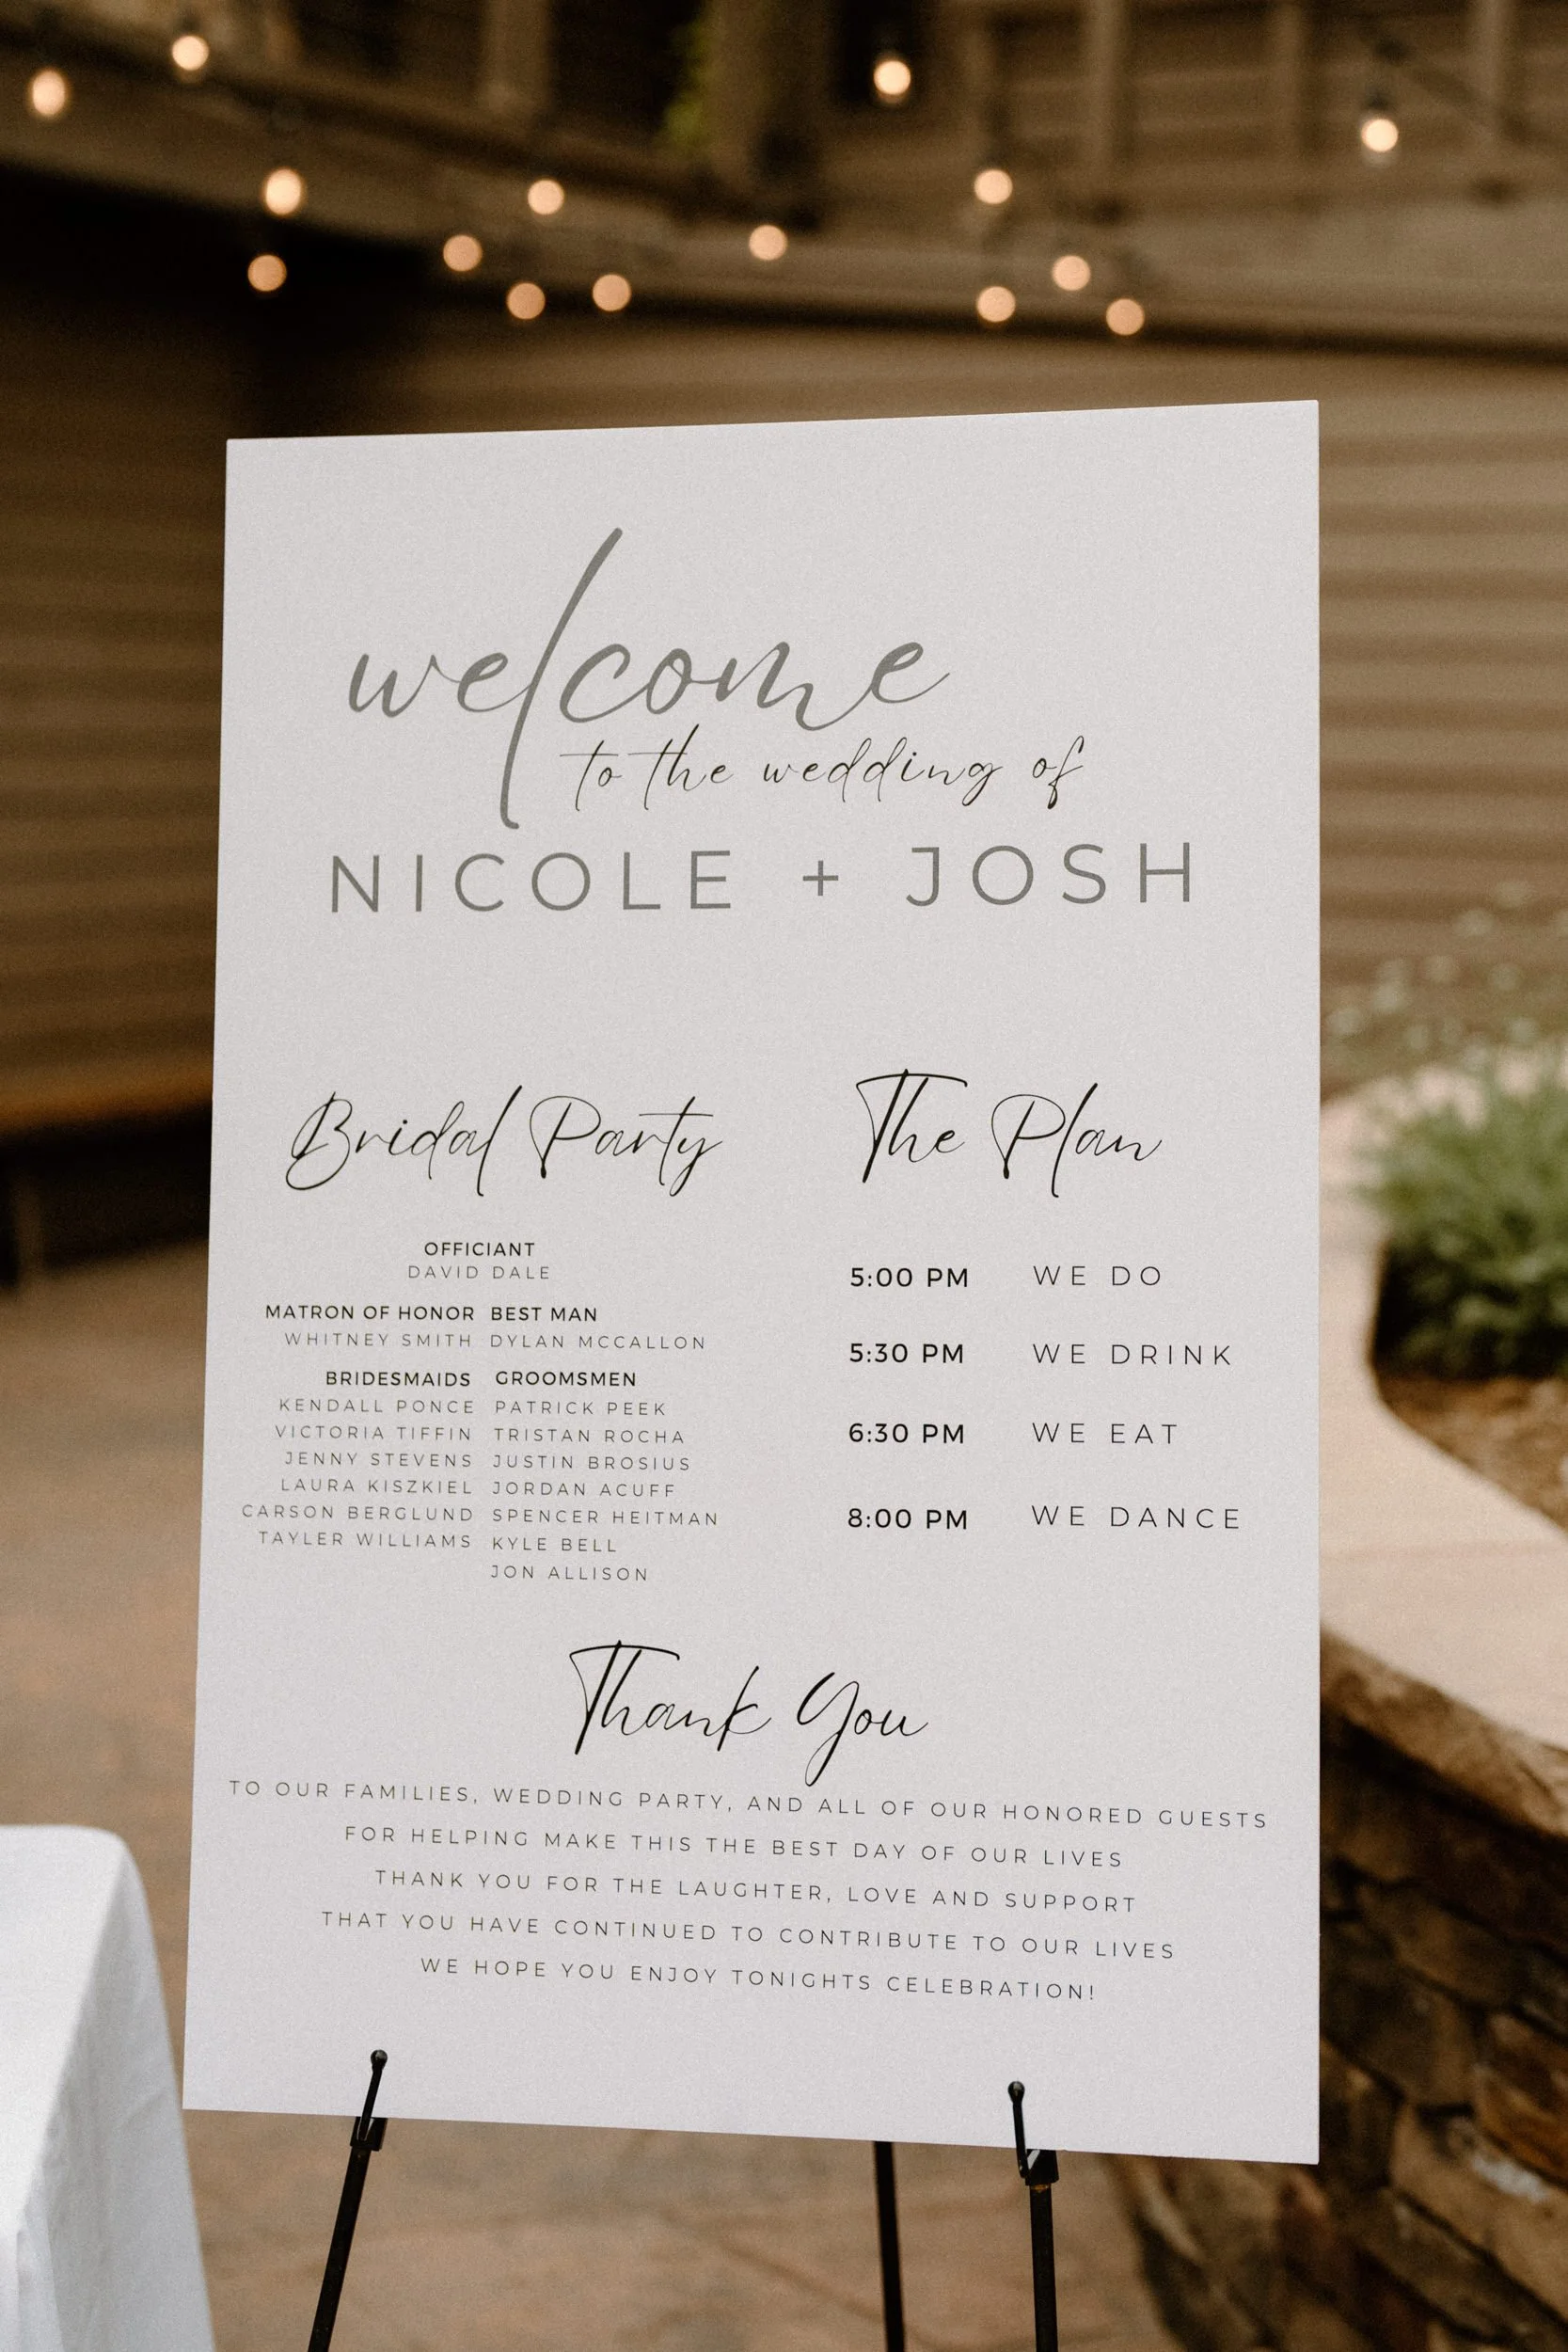 welcome
to the wedding of
NICOLE + JOSH
Bridal Party
OFFICIANT
DAVID DALE
MATRON OF HONOR BEST MAN
WHITNEY SMITH DYLAN MCCALLON
BRIDESMAIDS GROOMSMEN
KENDALL PONCE PATRICK PEEK
VICTORIA TIFFIN TRISTAN ROCHA
JENNY STEVENS JUSTIN BROSIUS
LAURA KISZKIEL JORDAN ACUFF
CARSON BERGLUND SPENCER HEITMAN
TAYLER WILLIAMS KYLE BELL
JON ALLISON
The Plan
5:00 PM WE DO
5:30 PM WE DRINK
6:30 PM WE EAT
8:00 PM WE DANCE
Thank You
TO OUR FAMILIES, WEDDING PARTY, AND ALL OF OUR HONORED GUESTS
FOR HELPING MAKE THIS THE BEST DAY OF OUR LIVES
THANK YOU FOR THE LAUGHTER, LOVE AND SUPPORT
THAT YOU HAVE CONTINUED TO CONTRIBUTE TO OUR LIVES
WE HOPE YOU ENJOY TONIGHTS CELEBRATION!